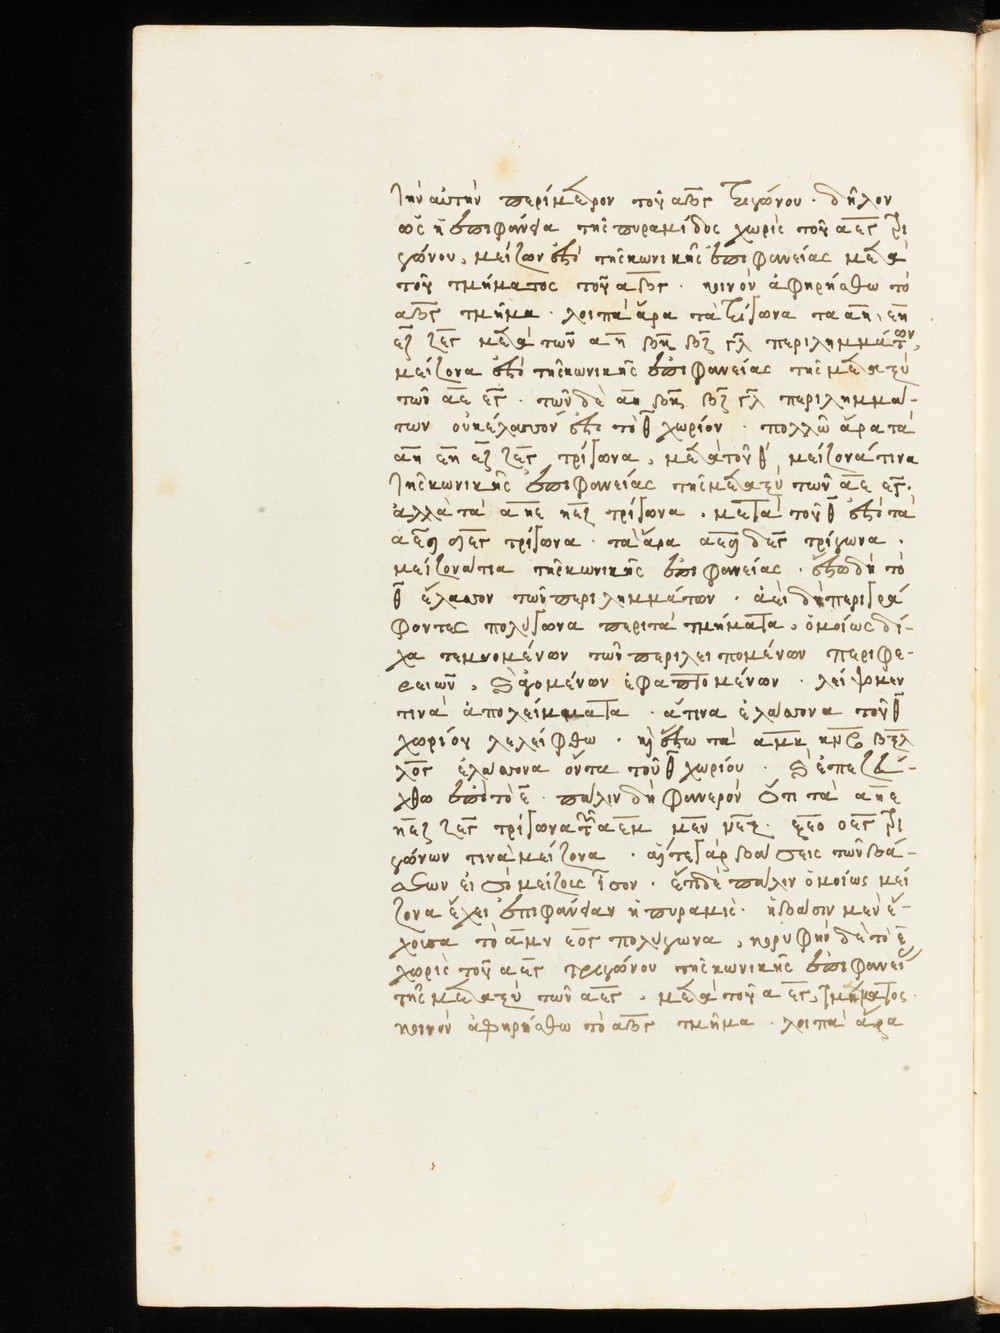 τὴν αὐτὴν περίμετρον τοῦ αβγ τριγώνου · δῆλον
ὡς ἡ ἐπιφάνεια τῆς πυραμίδος χωρὶς τοῦ αεγ τρι
γώνου, μείζων ἐστὶ τῆς κωνικῆς ἐπιφανείας μετὰ
τοῦ τμήματος τοῦ αβγ · κοινὸν ἀφηρήσθω τὸ
αβγ τμῆμα · λοιπὰ ἄρα τὰ τρίγωνα τὰ αη, εη
εζ ζεγ μετὰ τῶν αη βη βζ γλ περιλημμάτων,
μείζονα ἐστὶ τῆς κωνικῆς ἐπιφανείας τῆς μεταξὺ
τῶν αε εγ · τῶν δὲ αη βη βζ γλ περιλημμά-
των οὐκ ἔλασσόν ἐστι τὸ θ χωρίον · πολλῷ ἄρα τὰ
αη εη εζ ζεγ τρίγωνα, μετὰ τοῦ θ μείζονά τινα
τῆς κωνικῆς ἐπιφανείας τῆς μεταξὺ τῶν αε εγ.
ἀλλὰ τὰ αηε ηεζ τρίγωνα, μετὰ τοῦ θ ἐστὶ τὰ
τρίγωνα · τὰ ἄρα τρίγωνα ·
μείζονα τῆς κωνικῆς ἐπιφανείας · ἔστω δὴ τὸ
θ ἔλασσον τῶν περιλημμάτων · ἀεὶ δὴ περιγρά
φοντες πολύγωνα περὶ τὰ τμήματα, ὁμοίως δί-
χα τεμνομένων τῶν περιλειπομένων περιφε-
ρειῶν, καὶ ἀγομένων ἐφαπτομένων · λείψομεν
τινὰ ἀπολείμματα · ἅτινα ἐλάσσονα τοῦ θ
χωρίου λελείφθω · καὶ ἔστω τὰ αμκ
λογ ἐλάσσονα ὄντα τοῦ θ χωρίου · καὶ ἐπεζεύ-
χθω ἐπὶ τὸ ε · πάλιν δὴ φανερὸν ὅτι τὰ αηε
ηεζ ζεγ τρίγωνα τῶν αεμ μεν νεξ · ξεο οεγ τρι
γώνων τινὰ μείζονα · αἵ τε γὰρ βάσεις τῶν βά-
σεων εἰσὶ μείζους ἴσον · ἔτι δὲ πάλιν ὁμοίως μεί
ζονα ἔχει ἐπιφάνειαν ἡ πυραμὶς · ἡ βάσιν μὲν ἔ-
χουσα τὸ αμν εογ πολύγωνα, κορυφὴν δὲ τὸ ε
χωρὶς τοῦ αεγ τριγώνου τῆς κωνικῆς ἐπιφανεί
τῆς μεταξὺ τῶν αεγ, μετὰ τοῦ αεγ τμήματος.
κοινὸν ἀφηρήσθω τὸ αβγ τμῆμα · λοιπὰ ἄρα